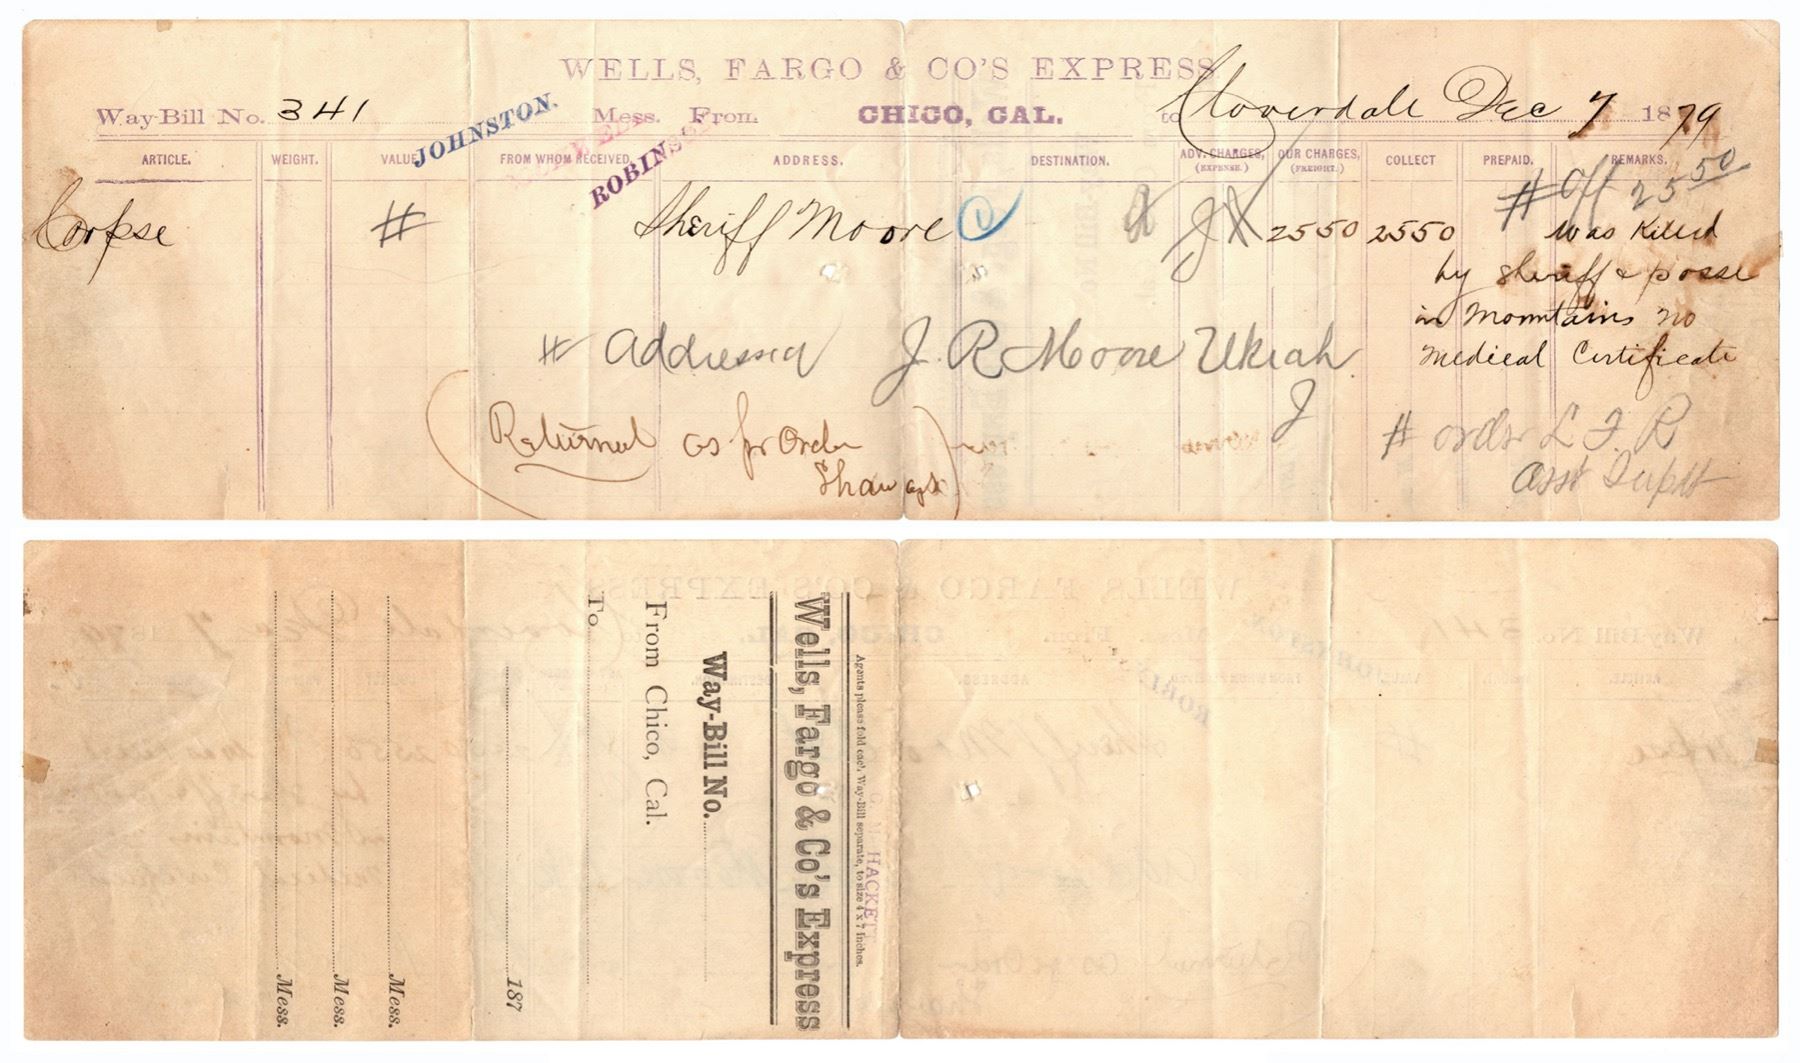 WELLS, FARGO & CO'S EXPRESS
Way-Bill No. 341 JOHNSTON. Mess. From CHICO, CAL. to Cloverdale Dec 7 1879
ROBINSON
ARTICLE. WEIGHT. VALUE FROM WHOM RECEIVED. ADDRESS. DESTINATION. ADV. CHARGES, (EXPENSE.) OUR CHARGES, (FREIGHT.) COLLECT PREPAID. REMARKS.
# Off 25 50
Corpse # Sheriff Moore 2550 2550 was Killed
by sheriff & posse
in Mountains no
Medical Certificate
# Addressed J. R Moore Ukiah
J
(Returned as pr Order
Shaw agt)
# order L. F. R
Asst Supdt
Agents please fold each Way-Bill separate, to size 4 x 7 inches.
HACKETT
Wells, Fargo & Co's Express
Way-Bill No.
From Chico, Cal.
To
187
Mess.
Mess.
Mess.